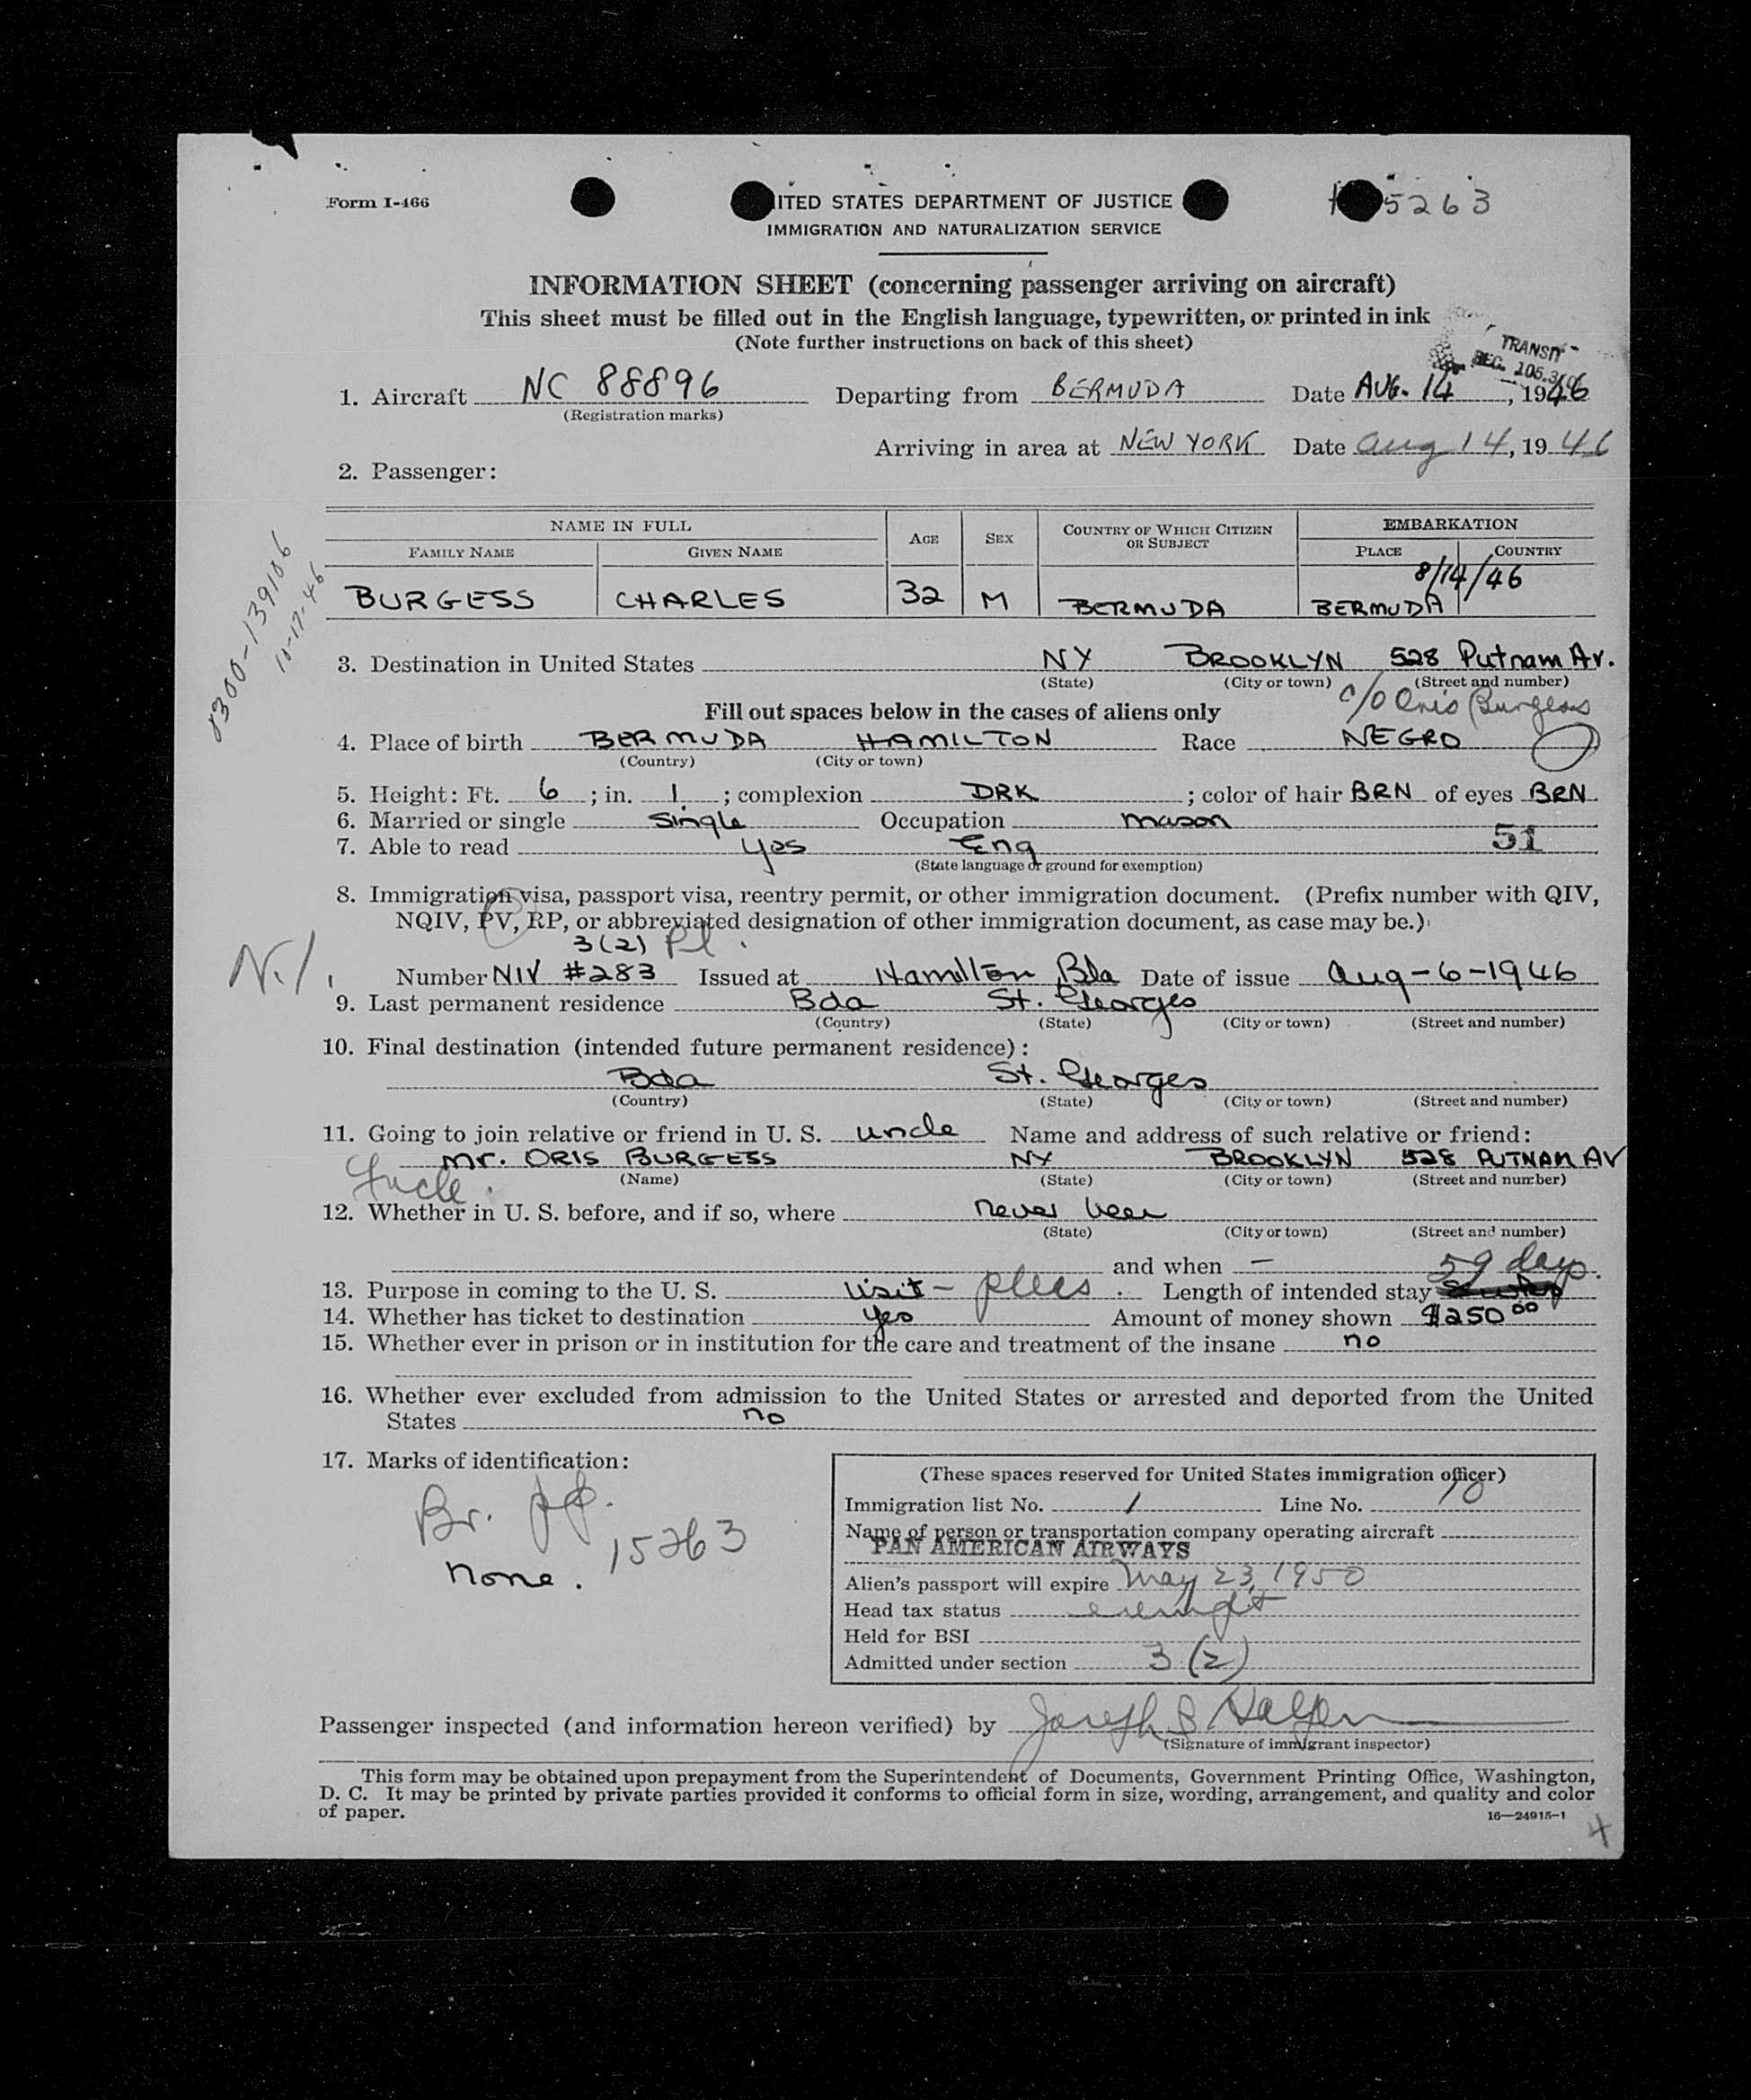 Form I-466
ITED STATES DEPARTMENT OF JUSTICE
5263
IMMIGRATION AND NATURALIZATION SERVICE
INFORMATION SHEET (concerning passenger arriving on aircraft)
This sheet must be filled out in the English language, typewritten, or printed in ink
(Note further instructions on back of this sheet)
TRANSIT
SEC. 105.3
1. Aircraft NC 88896 Departing from BERMUDA Date AUG. 14, 1946
(Registration marks)
Arriving in area at NEW YORK Date Aug 14, 1946
2. Passenger:
NAME IN FULL AGE SEX COUNTRY OF WHICH CITIZEN OR SUBJECT EMBARKATION
FAMILY NAME GIVEN NAME PLACE COUNTRY
8/14/46
BURGESS CHARLES 32 M BERMUDA BERMUDA
8300-139106
10-17-46
3. Destination in United States NY BROOKLYN 528 Putnam Av.
(State) (City or town) (Street and number)
c/o Oris Burgess
Fill out spaces below in the cases of aliens only
4. Place of birth BERMUDA HAMILTON Race NEGRO
(Country) (City or town)
5. Height: Ft. 6; in. 1.; complexion DRK; color of hair BRN of eyes BRN
6. Married or single Single Occupation mason
7. Able to read yes Eng 51
(State language or ground for exemption)
8. Immigration visa, passport visa, reentry permit, or other immigration document. (Prefix number with QIV,
NQIV, PV, RP, or abbreviated designation of other immigration document, as case may be.)
3(2) Pl.
Number NIV #283 Issued at Hamilton Bda Date of issue Aug-6-1946
9. Last permanent residence Bda St. Georges
(Country) (State) (City or town) (Street and number)
10. Final destination (intended future permanent residence):
Bda St. Georges
(Country) (State) (City or town) (Street and number)
11. Going to join relative or friend in U. S. uncle Name and address of such relative or friend:
Mr. ORIS BURGESS NY BROOKLYN 528 PUTNAM AV
(Name) (State) (City or town) (Street and number)
Uncle.
12. Whether in U. S. before, and if so, where never been
(State) (City or town) (Street and number)
and when — 59 days.
13. Purpose in coming to the U. S. Visit - pleas. Length of intended stay
14. Whether has ticket to destination yes Amount of money shown $250 00
15. Whether ever in prison or in institution for the care and treatment of the insane no
16. Whether ever excluded from admission to the United States or arrested and deported from the United
States no
17. Marks of identification:
Br. pp.
15263
none.
(These spaces reserved for United States immigration officer)
Immigration list No. 1 Line No. 10
Name of person or transportation company operating aircraft
PAN AMERICAN AIRWAYS
Alien's passport will expire May 23, 1950
Head tax status exempt
Held for BSI
Admitted under section 3 (2)
Passenger inspected (and information hereon verified) by Joseph S Halpern
(Signature of immigrant inspector)
This form may be obtained upon prepayment from the Superintendent of Documents, Government Printing Office, Washington,
D. C. It may be printed by private parties provided it conforms to official form in size, wording, arrangement, and quality and color
of paper.
16—24915-1
4